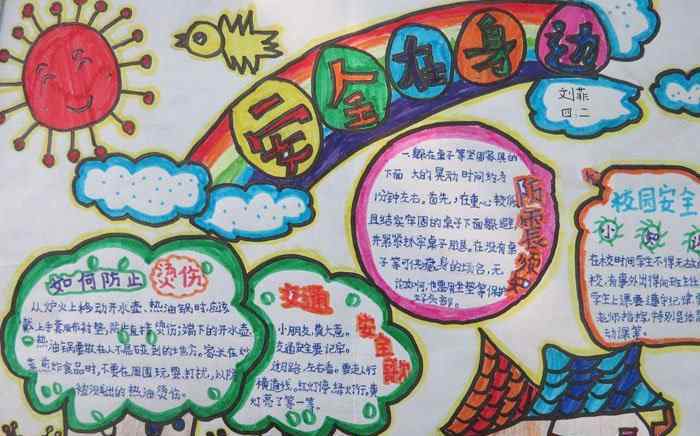 安全在身边
刘菲
四.二
如何防止烫伤
从炉火上移动开水壶、热油锅时,应该
戴上手套用布衬垫,防止直接烫伤;端下的开水壶、
热油锅要放在人不易碰到的地方。家长在炒
菜、煎炸食品时,不要在周围玩耍、打扰,以防
被溅出的热油烫伤。
交通安全歌
小朋友,莫大意。
交通安全要记牢。
过马路,左右看。要走人行
横道线,红灯停,绿灯行,黄
灯亮了等一等。
防震须知
一.躲在桌子等坚固家具的
下面 大的晃动时间约为
1分钟左右。首先,在重心较低
且结实牢固的桌子下面躲避
并紧紧抓牢桌子腿。在没有桌
子等可供藏身的场合,无
论如何,也要用坐垫等保护
好头部。
校园安全
小知
在校时间学生不得无故
校,有事外出得向班主任
学生上课要遵守纪律
老师指挥,特别是体
动课等。